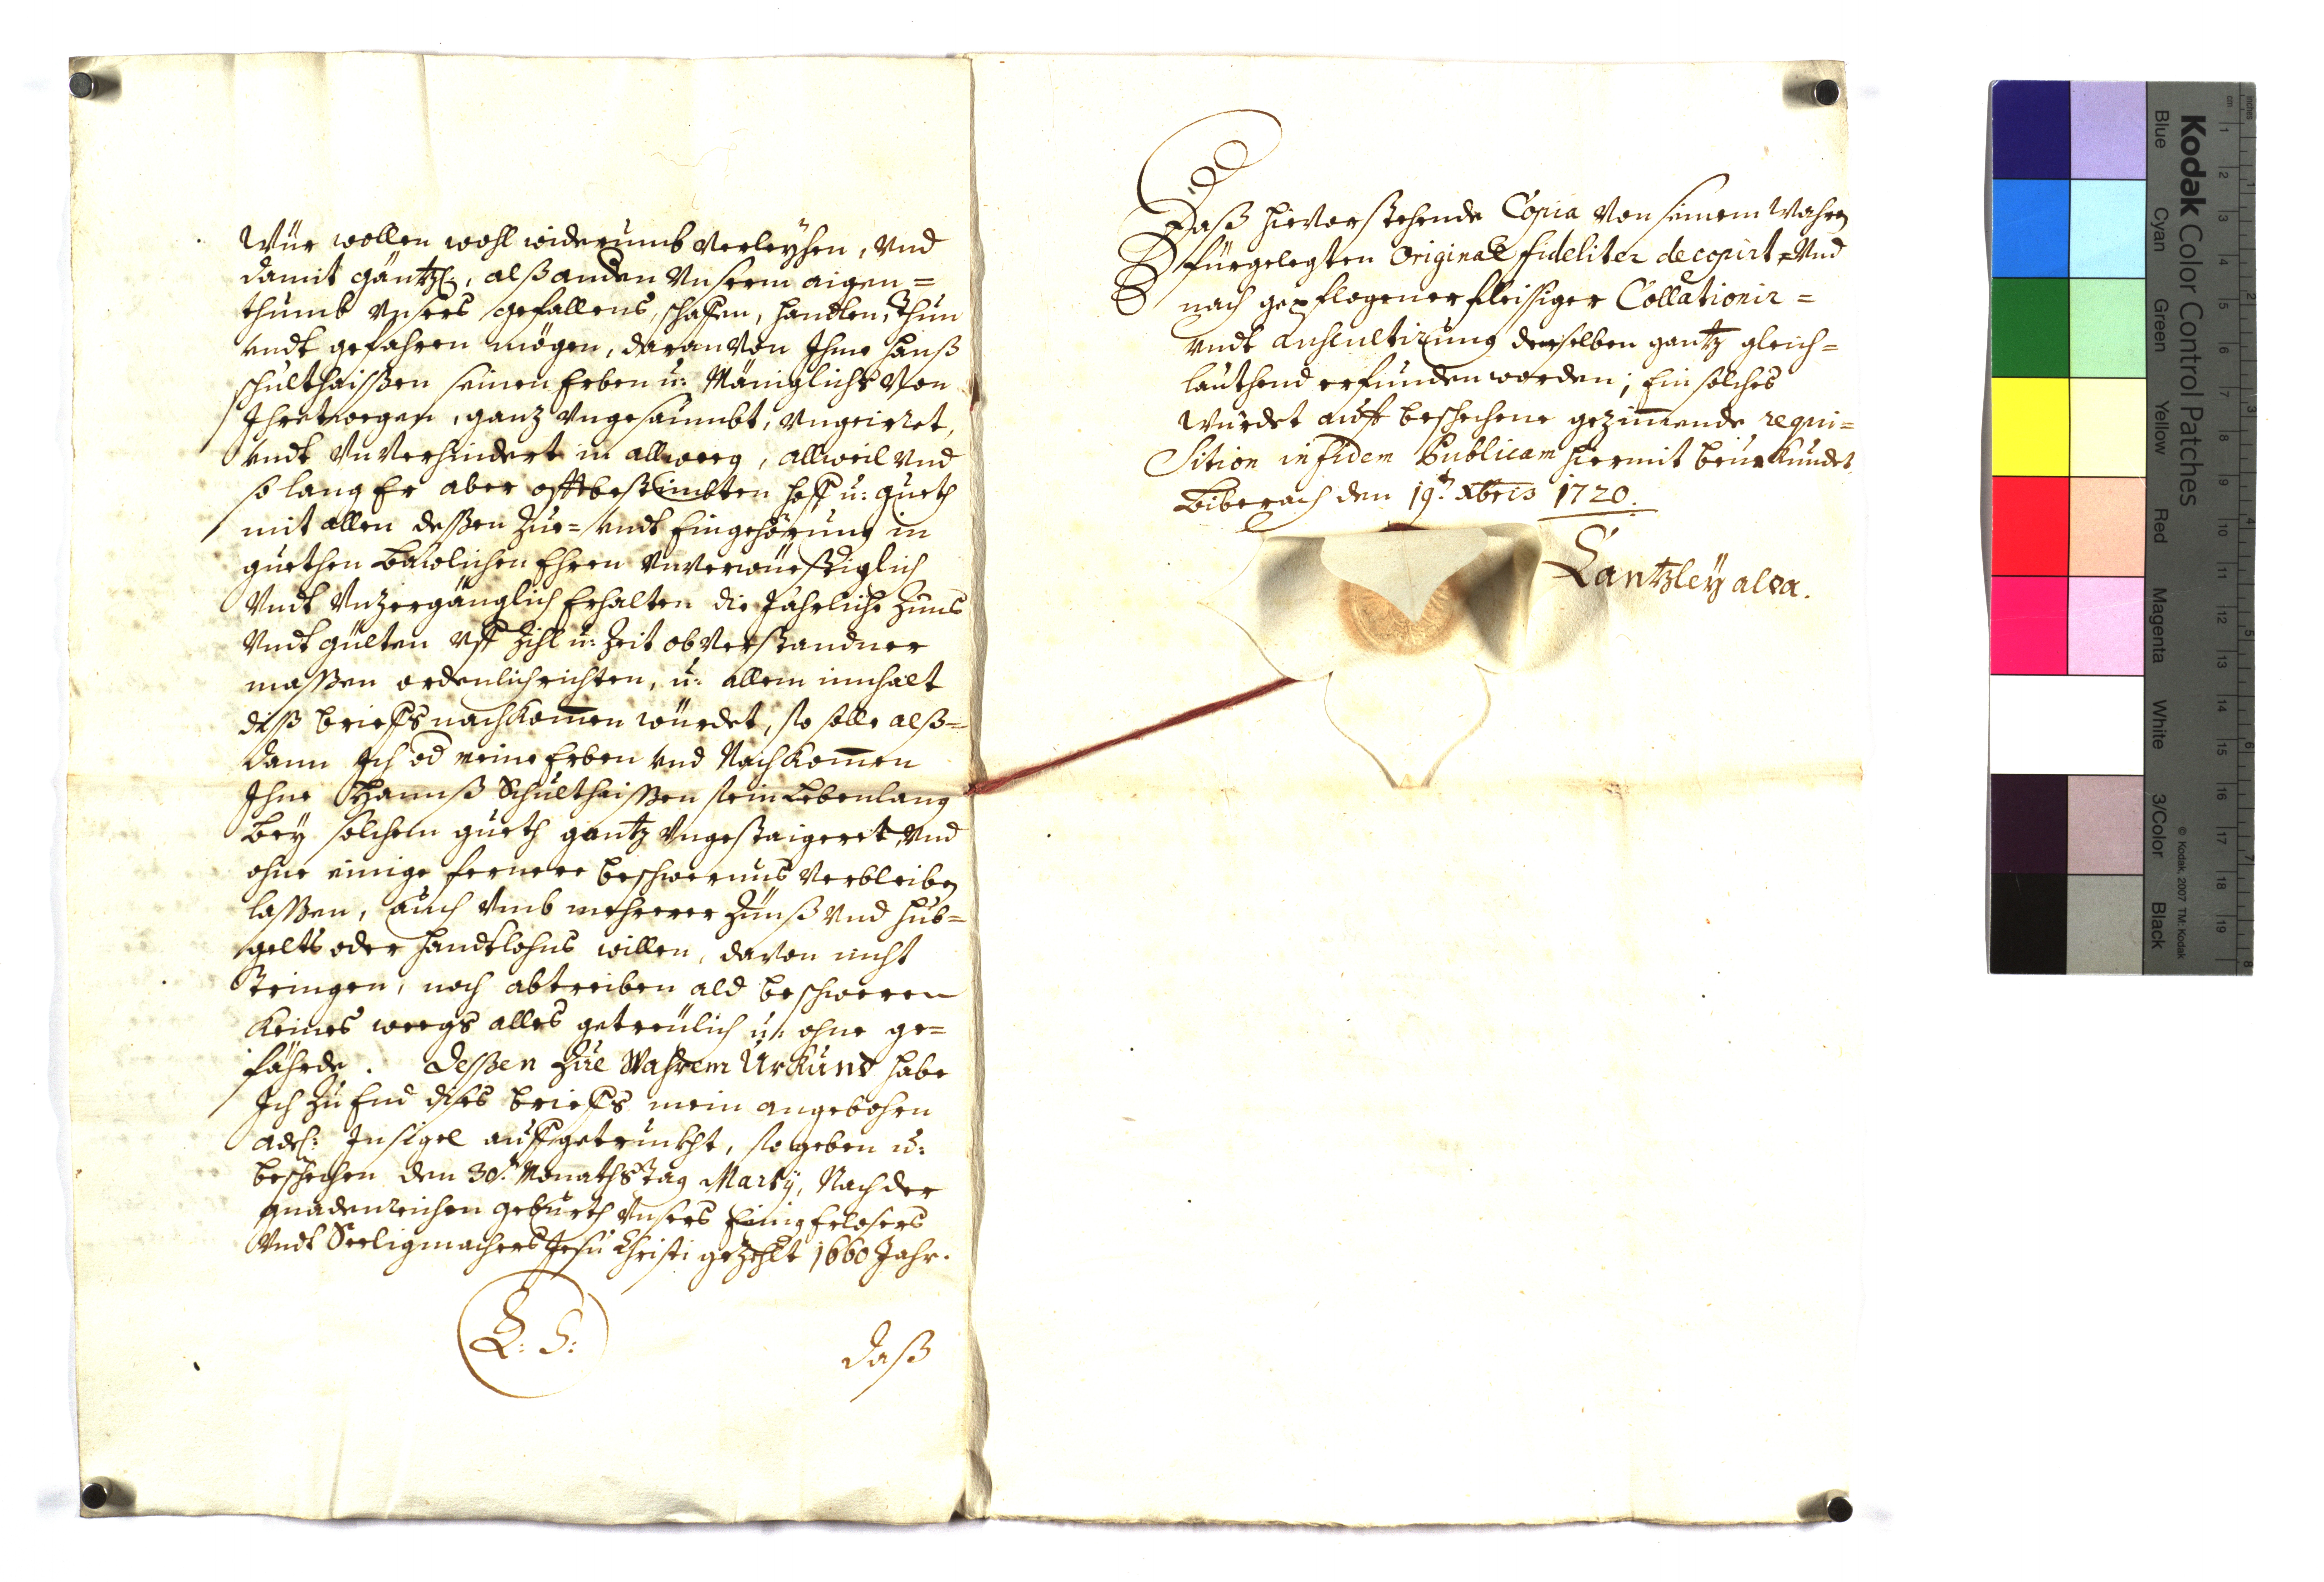 Wür wollen wohl widerumb verleyhen, vnd
damit gäntzl:, alß anden vnserm aigen=
thumb vnsers gefallens, schaffen, handlen, thun
vndt gefahren mögen, daran von Ihme Hanß
Schulthaißen seinen Erben u: Mäniglichs von
Ihretwegen, ganz vngesaumbt, vngeirret,
vndt vnverhindert in allweeg, allweil vnd
so lang Er aber offtbestimbten hoff u: gueth
mit allen deßen Zue= vndt Eingehörung in
guethen Bäwlichen Ehren vnverwüestiglich
Vndt Vnzergänglich Erhalten die Jährliche Zinns
Vndt gülten vff Zihl u: Zeit obverstandner
massen ordenlich richten, u: allem innhalt
diß brieffs nachkom̄en würdet, so solle alß=
dann Ich od meine Erben vnd Nachkom̄en
Ihne Hannß Schultheissen sein Lebenlang
Bey solchem gueth gantz vngestaigeret, vnd
ohne einige fernere beschwernus verbleiben
lassen, auch vmb mehrerer Zünß vnd hub=
gelts oder handtlohns willen, davon nicht
tringen, noch abtreiben ald beschweren
keines weegs alles getreülich u: ohne ge=
fährde. Deßen Zue Wahrem Urkund habe
Ich zu End dises brieffs mein angebohren
adel: Insigel auffgetruckht, so geben u:
beschehen den 30.t Monaths tag Martij, Nach der
gnadenreichen geburth vnsers Einig Erlösers
Vndt Seeligmachers Jesu Christi gezehlt 1660 Jahr.
L: S:
Daß
Daß hievorstehende Copia von seinem Wahren
fürgelegten Original fideliter decopirt= Vnd
nach gepflogener fleissiger Collationir=
vndt Auscultirung demselben gantz gleich=
lauthend erfunden worden; Ein solches
würdet auff beschechene gezim̄ende requi=
sition in fidem Publicam hiermit beurkundet
Biberach den 19.t Xbris 1720.
Cantzley alda.
Kodak Color Control Patches
Blue Cyan Green Yellow Red Magenta White 3/Color Black
© Kodak, 2007 TM: Kodak
inches 1 2 3 4 5 6 7 8
cm 1 2 3 4 5 6 7 8 9 10 11 12 13 14 15 16 17 18 19